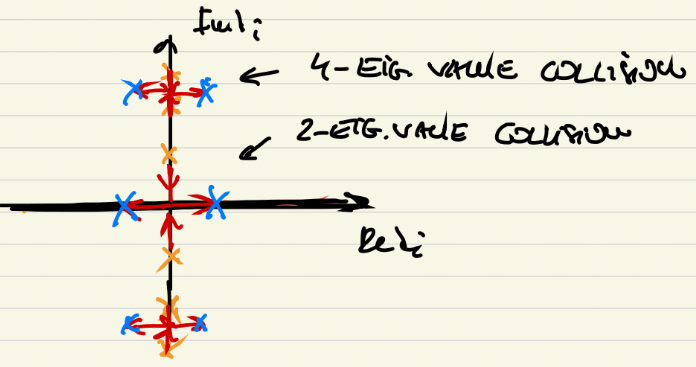 Imλi
4-EIG. VALUE COLLISION
2-EIG. VALUE COLLISION
Reλi